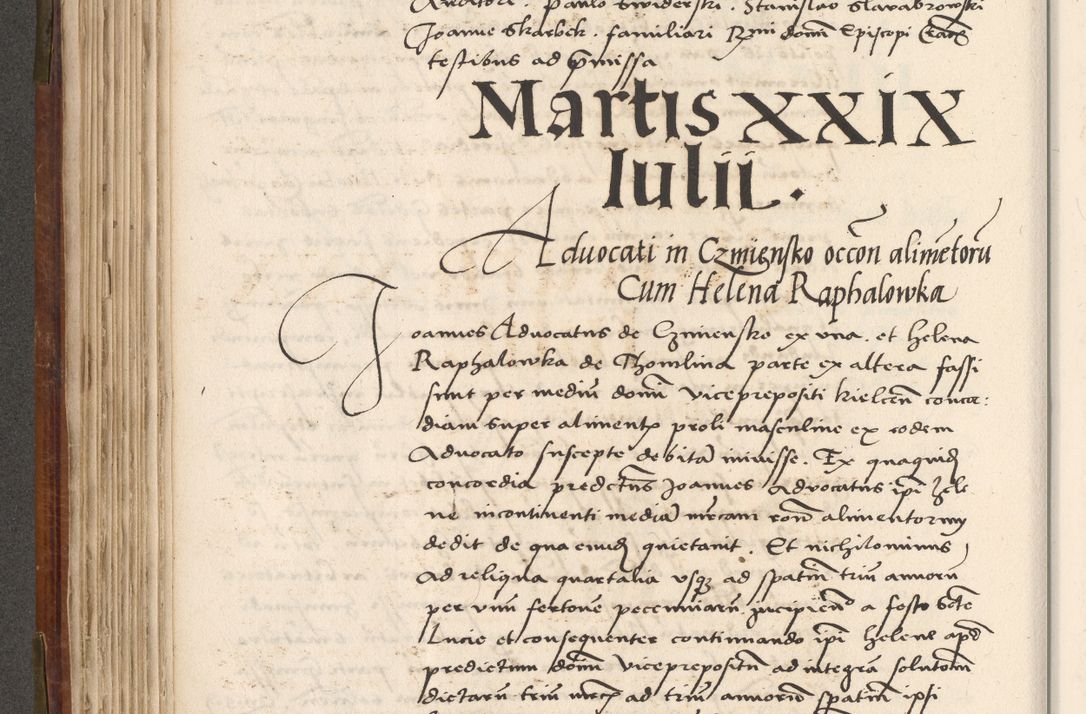 Auditori . Paulo Swiderski . Stanislao Slavabrowski
Joanne Skarbek . familiari Rmi domi Episcopi Cracos
testibus ad pmissa
Martis XXIX
Iulii .
Advocati in Czmiensko occon alimetoru
Cum Helena Raphalowka
Joannes Advocatus de Czmiensko ex vna . et helena
Raphalowka de Thomlina parte ex altera fassi
sunt per mediu domi viceprepositi kielcen concor:
diam super aliment proli masculine ex eodem
Advocato suscepte debita iniuisse . Ex quaquid
concordia predctus Joannes Advocatus ipi hele
ne incontinenti media mcam ron alimentorum
dedit de qua eund quietauit . Et nichilominus
ad reliqua quartalia vsq ad spatiu triu annoru
per vnu fertone pecuniaru incipien a festo scte
Lucie et consequenter continuando ipi helene apd
predictum domi viceprepositu ad integra solutom
dictaru triu mcr ad triu annoru spatiu ipsi